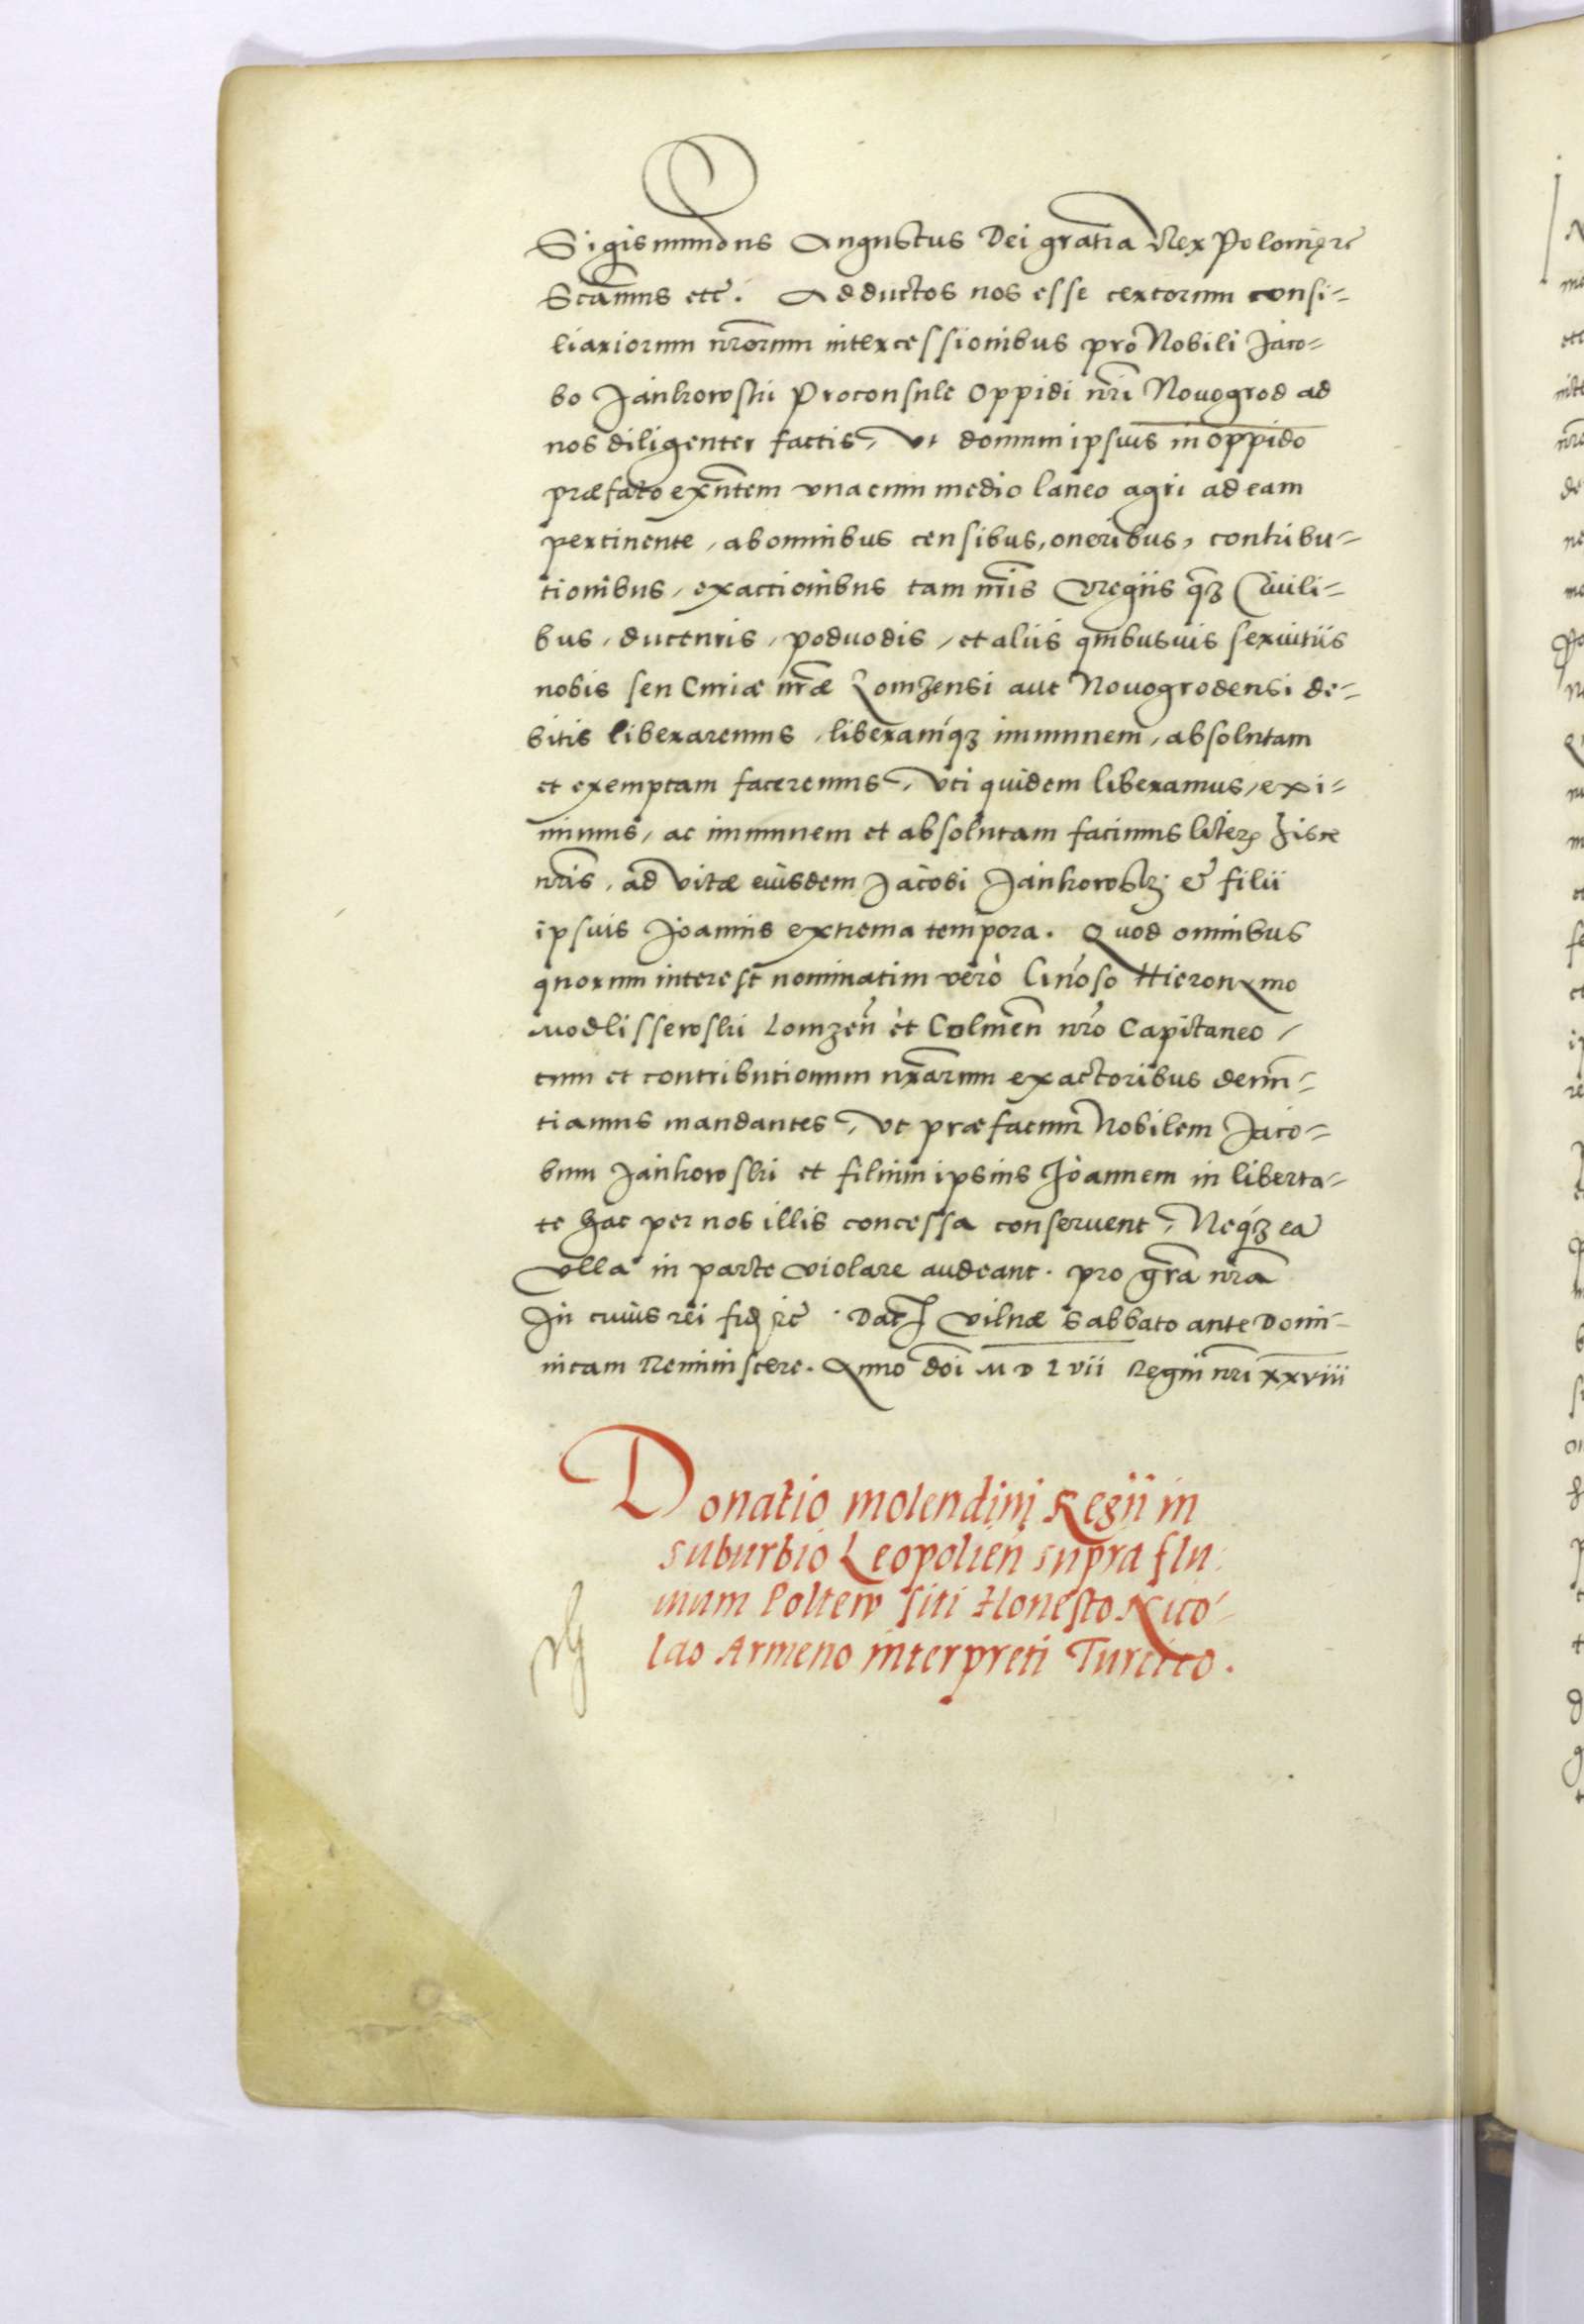 Sigismundus Augustus Dei gratia Rex Poloniæ etc̃
Scam̃us etc̃. Adductos nos esse certorum consi-
liariorum nr̃orum intercessionibus pro Nobili Jaco-
bo Jankowski Proconsule Oppidi nr̃i Nouogrod ad
nos diligenter factis, Vt domum ipsius in oppido
præfato exñtem vna cum medio laneo agri ad eam
pertinente, ab omnibus censibus, oneribus, contribu-
tionibus, exactionibus tam nr̃is Regiis q̃ꝫ Ciuili-
bus, ducentis, poduodis, et aliis quibusuis seruitiis
nobis seu Curiæ nr̃æ Lomzensi aut Nouogrodensi de-
bitis liberaremus, liberamq́ꝫ immunem, absolutam
et exemptam faceremus, Vti quidem liberamus, exi-
mimus, ac immunem et absolutam facimus literꝫ hisce
nr̃is, ad vitæ eiusdem Jacobi Jankowskj & filii
ipsuis Joannis extrema tempora. Quod omnibus
quorum interest nominatim verò Gn̄oso Hieronymo
Modlissewski Lomzeñ et Colneñ nr̃o Capitaneo,
tum et contributionum nr̃arum exactoribus denun-
tiamus mandantes, Vt præfatum Nobilem Jaco-
bum Jankowski et filium ipsius Joannem in liberta-
te hac per nos illis concessa conseruent, Neq́ꝫ ea
Vlla in parte violare audeant. pro gr̃a nr̃a
In cuius rei fidẽ etc̃. Dat̃ Vilnæ Sabbato ante Domi-
nicam Reminiscere. Anno dñi M D L vii Regni nr̃i xxviii
Donatio molendini Regii in
suburbio Leopolień supra flu-
uium Poltew siti Honesto Nico-
lao Armeno interpreti Turcico.